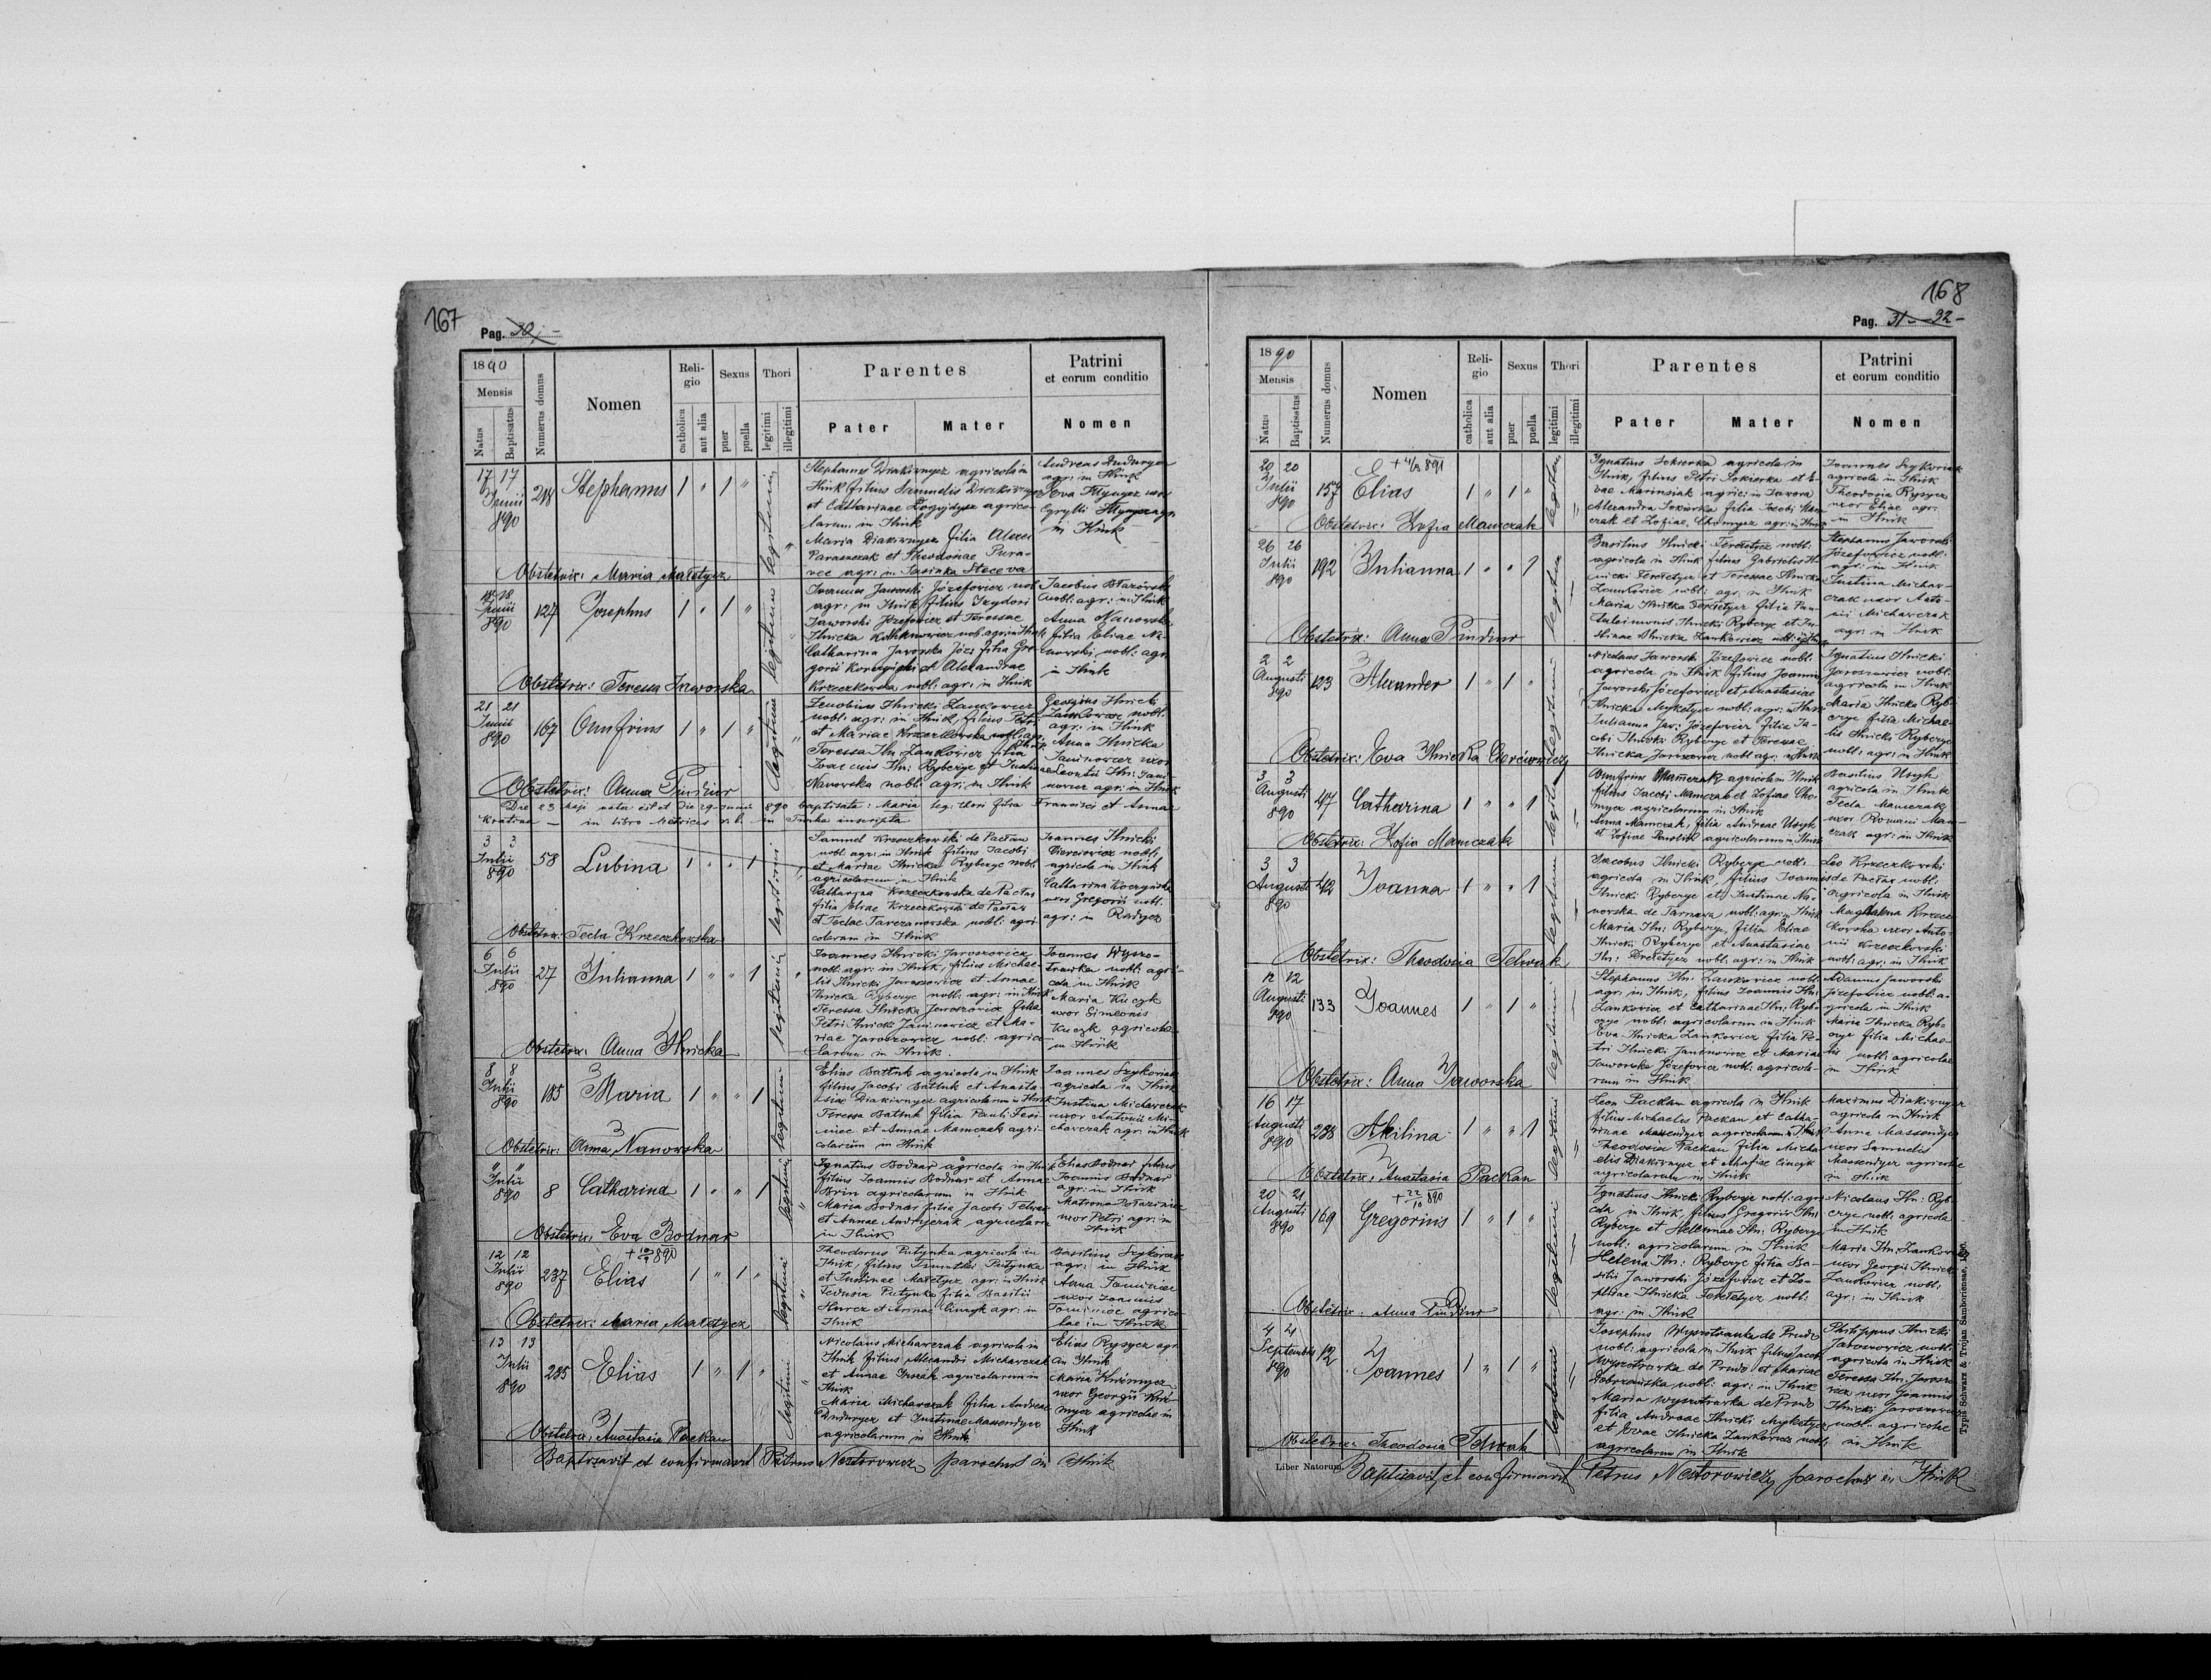 167
Pag. 30,-
1890
Mensis
Natus
Baptisatus
Numerus domus
Nomen
Religio
catholica
aut alia
Sexus
puer
puella
Thori
legitimi
illegitimi
Parentes
Pater
Mater
Patrini
et eorum conditio
Nomen
17 17
Junii
890
218
Stephanus
1 " 1 "
legitimi
Stephanus Diakiwnycz agricola in
Ilnik filius Samuelis Diakiwnycz
et Catharinae agrico-
larum in Ilnik
Maria Diakiwnycz filia Alexei
Paraszczak et Theodoriae
agr: in Jasinka Steceva
Andreas Dudurycz
agr: in Ilnik
Eva uxor
Cyrylli agr.
in Ilnik
Obstetrix: Maria Maletycz
18
Junii
890
127
Josephus
1 " 1 "
legitimi
Joannes Jaworski Józefowicz nob.
agr: in Ilnik filius Izydori
Jaworski Józefowicz et Teressae
Ilnicka nob. agr: in Ilnik
Catharina Jaworska Józ: filia Gre-
gorii et Alexandrae
Krzeczkowska, nobl: agr: in Ilnik
Jacobus Błażowski
nobl: agr: in Ilnik
Anna Nanowska
filia Eliae Na-
nowski nobl: agr.
in Ilnik
Obstetrix: Teressa Jaworska
21 21
Junii
890
167
Onufrius
1 " 1 "
legitimi
Zenobius Ilnicki Zankowicz
nobl: agr: in Ilnik, filius Petri
et Mariae Krzeczkowska nobl: agr.
Teressa Iln: Zankowicz filia
Joannis Iln: Ryberyc et Justinae
Nanowska nobl: agr: in Ilnik
Georgius Ilnicki
Zankowicz nobl:
agr: in Ilnik
Anna Ilnicka
Janinowicz uxor
Leontii Iln: Jani-
nowicz agr: in Ilnik
Obstetrix: Anna Pindior
Die 23 Maji nata est et Die 29 Junii 890 baptisata: Maria leg. thori filia Francisci et Anna
in libro Metrices r.l. in Turka inscripta
3 3
Julii
890
58
Lubina
1 " " 1
legitimi
Samuel Krzeczkowski de Pactan
nobl. agr: in Ilnik filius Jacobi
et Mariae Ilnicka Ryberyc nobl:
agricolarum in Ilnik
Catharyna Krzeczkowska de Pactas
filia Eliae Krzeczkowski de Pactas
et Teclae Tarczanowska nobl: agri-
colarum in Ilnik
Joannes Ilnicki
Cierciowicz nobl:
agricola in Ilnik
Catharina Koczyńska
uxor Gregorii nobl:
agr: in Radycz
Obstetrix: Tecla Krzeczkowska
6 6
Julii
890
27
Julianna
1 " " 1
legitimi
Joannes Ilnicki Jaroszowicz
nobl: agr: in Ilnik, filius Michae-
lis Ilnicki Jaroszowicz et Annae
Ilnicka Ryberyc nobl: agr: in Ilnik
Teressa Ilnicka Jaroszowicz filia
Petri Ilnicki Janinowicz et Ma-
riae Jaroszowicz nobl: agrico-
larum in Ilnik.
Joannes Wyszo-
trawka nobl: agri-
cola in Ilnik
Maria Kuczyk
uxor Simeonis
Kuczyk agricola
in Ilnik
Obstetrix: Anna Ilnicka
8 8
Julii
890
185
Maria
1 " " 1
legitimi
Elias Bałtuk agricola in Ilnik
filius Jacobi Bałtuk et Anasta-
siae Diakiwnycz agricolarum in Ilnik
Teressa Bałtuk filia Pauli
et Annae Mamczak agri-
colarum in Ilnik
Joannes Szykoriak
agricola in Ilnik
Justina Michawczak
uxor Antonii Mi-
chawczak agr: in Ilnik
Obstetrix: Anna Nanowska
" "
Julii
890
8
Catharina
1 " " 1
legitimi
Ignatius Bodnar agricola in Ilnik
filius Joannis Bodnar et Annae
Brin agricolarum in Ilnik
Maria Bodnar filia Jacobi Telwak
et Annae Andryczak agricolarum
in Ilnik
Elias Bodnar filius
Joannis Bodnar
agr: in Ilnik
Matrona
uxor Petri agr: in
Ilnik
Obstetrix: Eva Bodnar
12 12
Julii
890
237
Elias
1 " 1 "
legitimi
Theodorus Putynka agricola in
Ilnik filius Putynka
et Justinae Maletycz agr: in Ilnik
Putynka filia Basilii
et Annae agr: in
Ilnik
Basilius Szykoriak
agr: in Ilnik
Anna
uxor Joannis
agrico-
lae in Ilnik
Obstetrix: Maria Maletycz
13 13
Julii
890
285
Elias
1 " 1 "
legitimi
Nicolaus Michawczak agricola in
Ilnik filius Alexandri Michawczak
et Annae agricolarum in
Ilnik
Maria Michawczak filia Andreae
Dudurycz et Justinae Massendycz
agricolarum in Ilnik
Elias Rysycz agr.
in Ilnik
Maria
uxor Georgii
agricolae in
Ilnik
Obstetrix: Anastasia Packan
Baptisavit et confirmavit Petrus Nestorowicz parochus in Ilnik
168
Pag. 31- 32-
1890
Mensis
Natus
Baptisatus
Numerus domus
Nomen
Religio
catholica
aut alia
Sexus
puer
puella
Thori
legitimi
illegitimi
Parentes
Pater
Mater
Patrini
et eorum conditio
Nomen
20 20
Julii
890
157
Elias
1 " 1 "
Ignatius Sokierka agricola in
Ilnik, filius Petri Sokierka et E-
vae Marinsiak agric: in Jawora
Alexandra Sokierka filia Jacobi Mam-
czak et Zofiae Chomycz agr: in Ilnik
Joannes Szykoriak
agricola in Ilnik
Theodozia Rysycz
uxor Eliae agr.
in Ilnik
Obstetrix: Zofia Mamczak
26 26
Julii
890
192
Julianna
1 " " 1
Basilius Ilnicki Terletycz nobl:
agricola in Ilnik filius Gabrielis Il-
nicki Terletycz et Teressae Ilnicka
Zankowicz nobl: agr. in Ilnik
Maria Ilnicka Terletycz filia Pan-
taleimonis Ilnicki Ryberyc et Ju-
stinae Ilnicka Zankowicz nobl:
Stephanus Jaworski
Józefowicz nobl:
agr: in Ilnik
Justina Michaw-
czak uxor Anto-
nii Michawczak
agr: in Ilnik
Obstetrix: Anna Pindior
2 2
Augusti
890
123
Alexander
1 " 1 "
legitimi
Nicolaus Jaworski Józefowicz nobl:
agricola in Ilnik filius Joannis
Jaworski Józefowicz et Anastasiae
Ilnicka Myketycz nobl: agr: in Ilnik
Julianna Jaw: Józefowicz filia Ja-
cobi Ilnicki Ryberyc et Teressae
Ilnicka Jaroszowicz nobl: agr: in Ilnik
Ignatius Ilnicki
Jaroszowicz nobl:
agricola in Ilnik
Maria Ilnicka Ryb-
eryc filia Michae-
lis Ilnicki Ryberyc
nobl: agr: in Ilnik
Obstetrix: Eva Ilnicka Cierciowicz
3 3
Augusti
890
47
Catharina
1 " " 1
Onufrius Mamczak agricola in Ilnik
filius Jacobi Mamczak et Zofiae Cho-
mycz agricolarum in Ilnik
Anna Mamczak, filia Andreae Usyk
et Zofiae agricolarum in Ilnik
Basilius Usyk
agricola in Ilnik
Tecla Mamczak
uxor Romani Mam-
czak agr: in Ilnik
Obstetrix: Zofia Mamczak
3 3
Augusti
890
42
Joanna
1 " " 1
legitimi
Jacobus Ilnicki Ryberyc nobl:
agricola in Ilnik, filius Joannis
Ilnicki Ryberyc et Justinae Na-
nowska de Tarnawa nobl: agr: in Ilnik
Maria Iln: Ryberyc, filia Eliae
Ilnicki Ryberyc et Anastasiae
Iln: Terletycz nobl: agr: in Ilnik
Leo Krzeczkowski
de Pactas nobl:
agricola in Ilnik
Magdalena Krzecz-
kowska uxor Anto-
nii Krzeczkowski
nobl: agr: in Ilnik
Obstetrix: Theodozia Telwak
12 12
Augusti
890
133
Joannes
1 " 1 "
legitimi
Stephanus Iln: Zankowicz nobl:
agr: in Ilnik, filius Joannis Iln:
Zankowicz et Catharinae Iln: Ryb-
eryc nobl: agricolarum in Ilnik
Eva Ilnicka Zankowicz filia Pe-
tri Ilnicki Janinowicz et Mariae
Jaworska Józefowicz nobl: agricola-
rum in Ilnik
Adamus Jaworski
Józefowicz nobl: a-
gricola in Ilnik
Maria Ilnicka Ryb-
eryc filia Michae-
lis nobl: agricolae
in Ilnik
Obstetrix: Anna Jaworska
16 17
Augusti
890
238
Akilina
1 " " 1
legitimi
Leon Packan agricola in Ilnik
filius Michaelis Packan et Catha-
rinae Massendycz agricolarum in Ilnik
Theodozia Packan filia Micha-
elis Diakiwnycz et
agricolarum in Ilnik
Maximus Diakiwnycz
agricola in Ilnik
Anna Massendycz
uxor Samuelis
Massendycz agricolae
in Ilnik
Obstetrix: Anastasia Packan
20 21
Augusti
890
169
+ 22/10 890
Gregorius
1 " 1 "
legitimi
Ignatius Ilnicki Ryberyc nobl: agri-
cola in Ilnik, filius Gregorii Iln:
Ryberyc et Helennae Iln: Ryberyc
nobl: agricolarum in Ilnik
Helena Iln: Ryberyc filia Ba-
silii Jaworski Józefowicz et
Ilnicka Terletycz nobl:
agr: in Ilnik
Nicolaus Iln: Ryb-
eryc nobl: agricola
in Ilnik
Maria Iln: Zankowicz
uxor Georgii Ilnicki
Zankowicz nobl:
agr: in Ilnik
Obstetrix: Anna Pindior
4 4
Septembris
890
12
Joannes
1 " 1 "
legitimi
Josephus Wysotrawka de Prudo
nobl: agricola in Ilnik filius Jacobi
Wysotrawka de Prudo et Mariae
nobl: agr: in Ilnik
Maria Wysotrawka de Prudo
filia Andreae Ilnicki Myketycz
et Evae Ilnicka Zankowicz nobl:
agricolarum in Ilnik
Philippus Ilnicki
Jaroszowicz nobl:
agricola in Ilnik
Teressa Iln: Jaroszo-
wicz uxor Joannis
Ilnicki Jaroszowicz
nobl: agricolae
in Ilnik
Obstetrix: Theodosia Telwak
Liber Natorum.
Baptisavit et confirmavit Petrus Nestorowicz parochus in Ilnik
Typis Schwarz & Trojan Samboriensae, 1890.